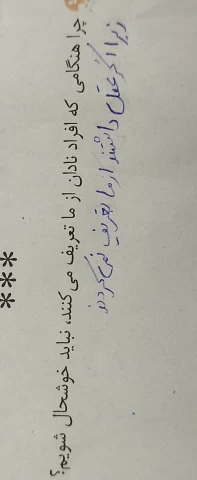 چرا هنگامی که افراد نادان از ما تعریف می‌کنند، نباید خوشحال شویم؟
زیرا اگر عقل داشتند از ما تعریف نمی‌کردند
***